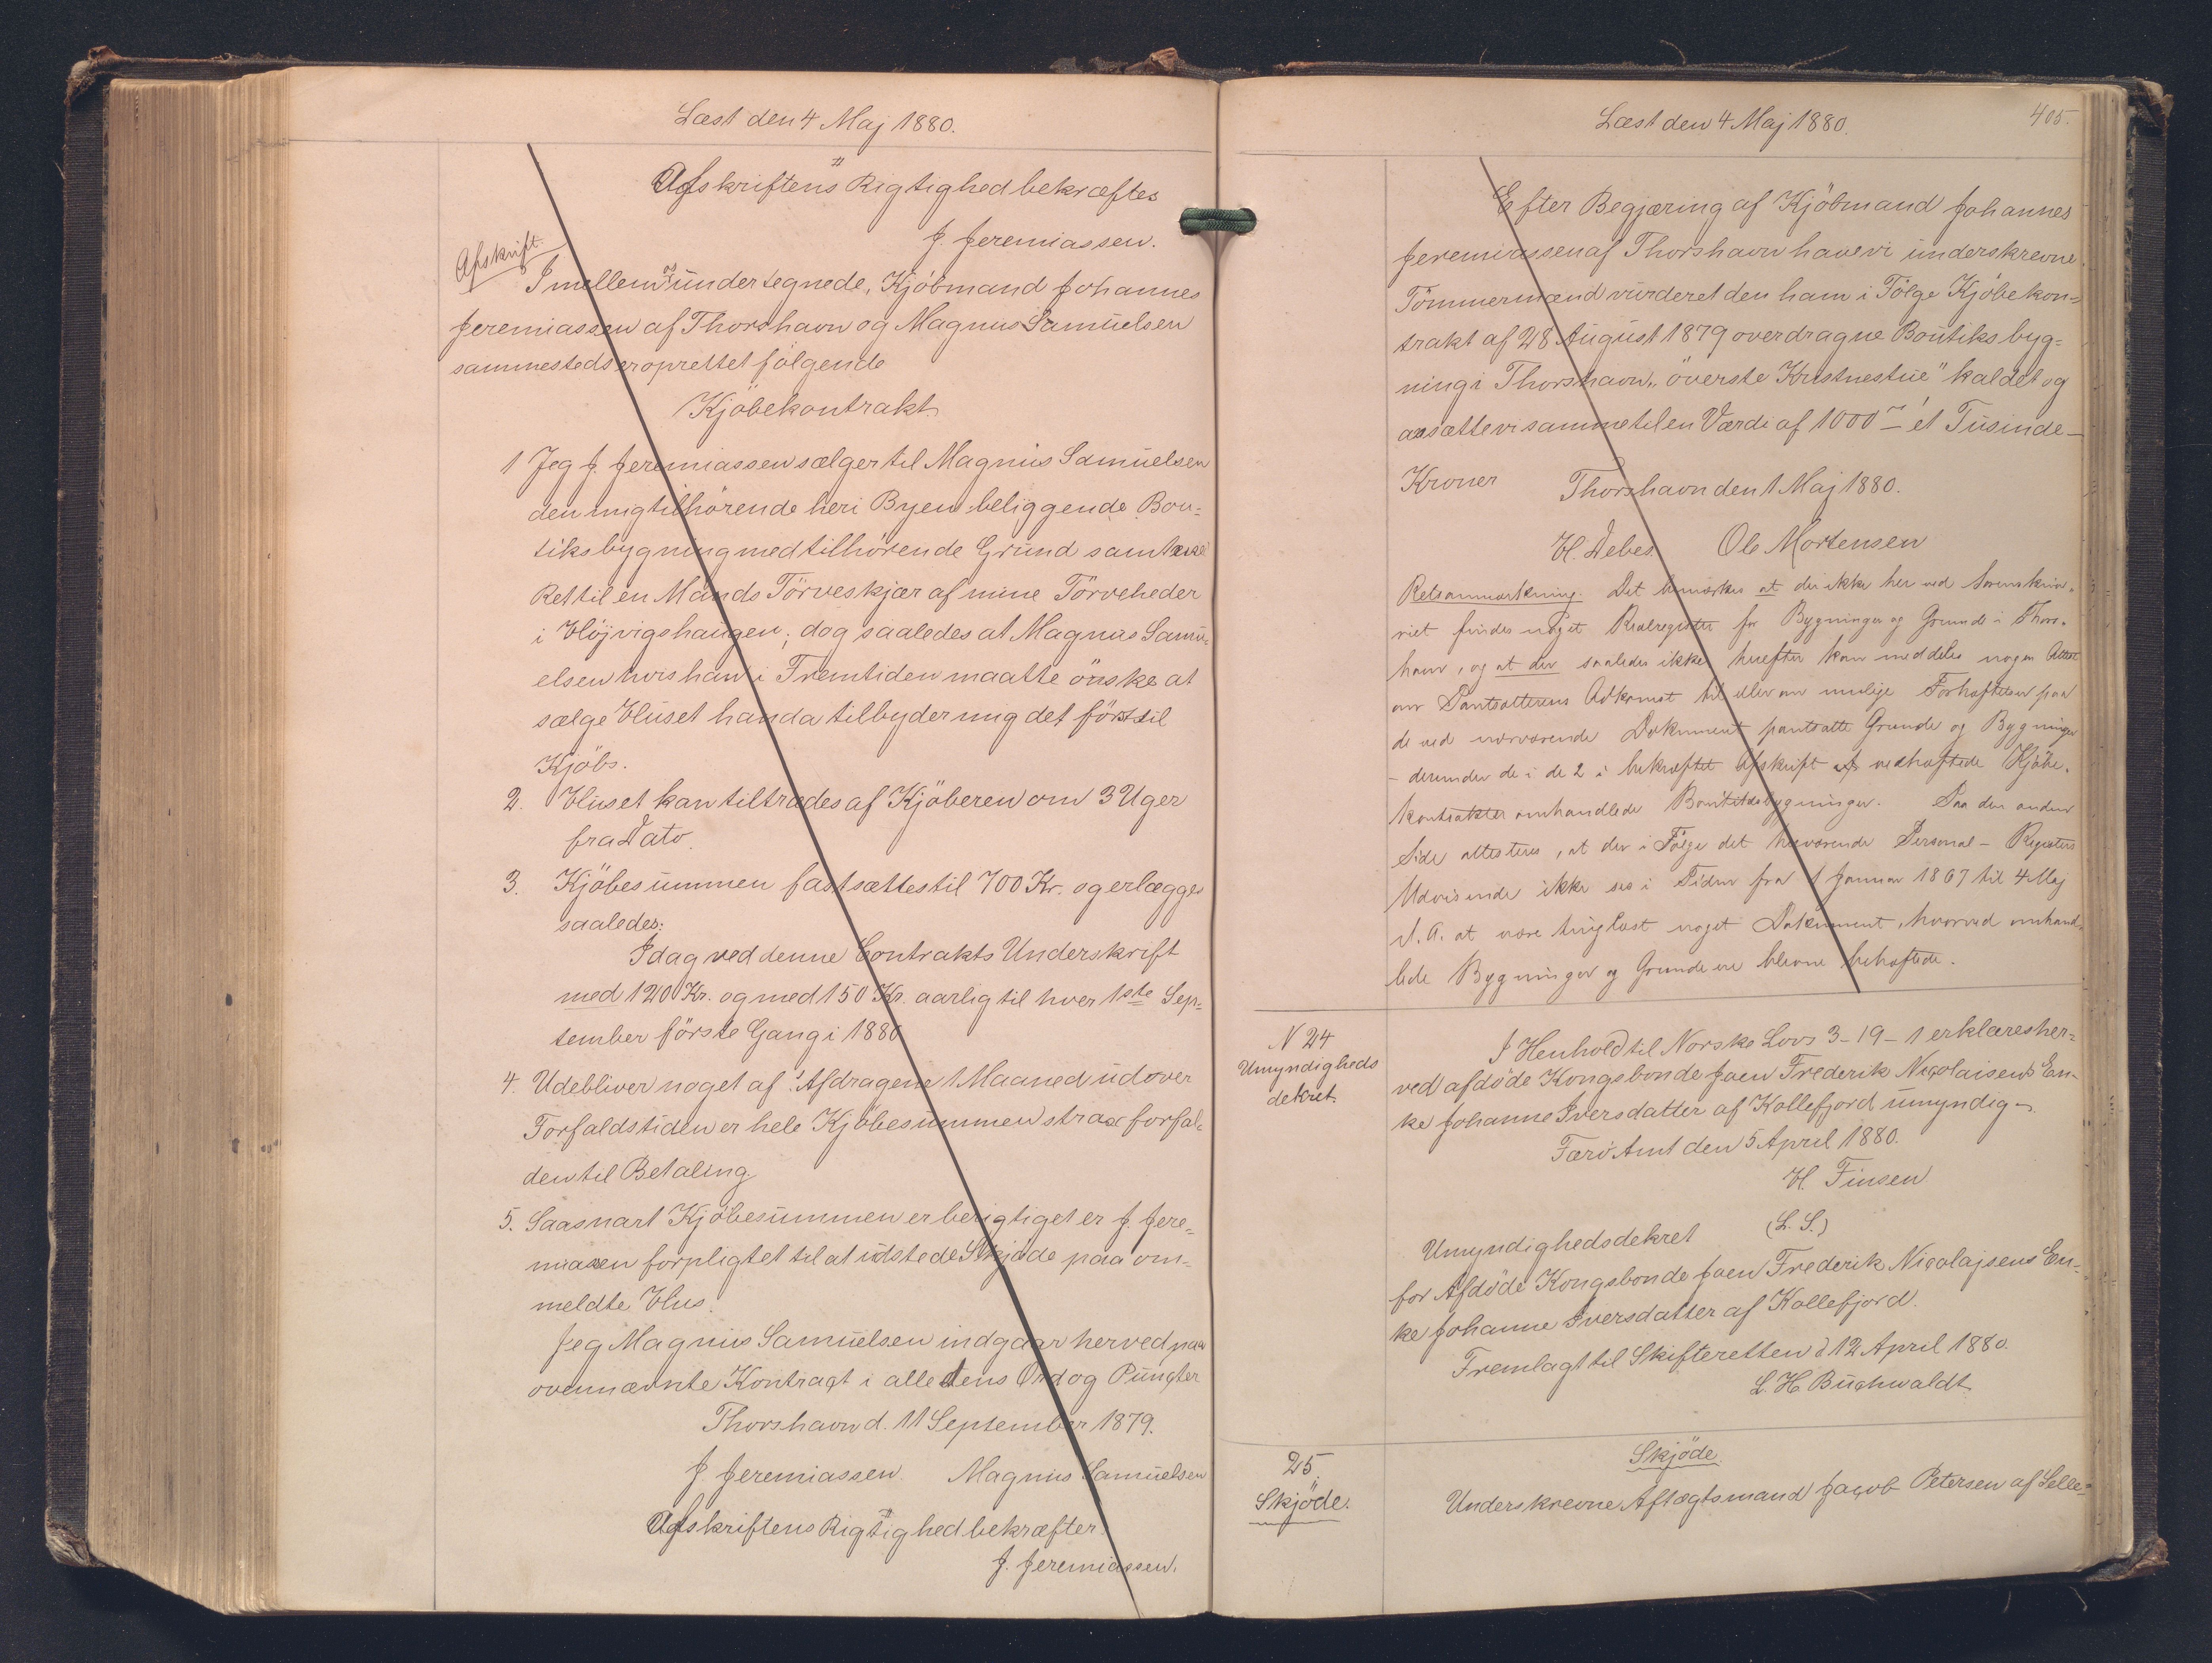 Læst den 4 Maj 1880.
Afskriftens Rigtighed bekræftes
J. Jeremiassen.
Afskrift.
Imellem os undertegnede, Kjöbmand Johannes
Jeremiassen af Thorshavn og Magnus Samuelsen
sammesteds er oprettet følgende
Kjöbekontrakt
1 Jeg J. Jeremiassen sælger til Magnus Samuelsen
den mig tilhörende her i Byen beliggende Bou-
tiksbygning med tilhörende Grund samt
Ret til en Mands Törveskjær af mine Törveheder
i Höjvigshaugen; dog saaledes at Magnus Samu-
elsen hvis han i Fremtiden maatte önske at
sælge Huset han da tilbyder mig det först til
Kjöbs.
2. Huset kan tiltrædes af Kjöberen om 3 Uger
fra Dato.
3. Kjöbesummen fastsættes til 700 Kr. og erlægges
saaledes:
Idag ved denne Contrakts Underskrift
med 120 Kr. og med 150 Kr. aarlig til hver 1ste Sep-
tember förste Gang i 1880
4. Udebliver noget af Afdragene 1 Maaned udover
Forfaldstiden er hele Kjöbesummen strax forfal-
den til Betaling
5. Saasnart Kjöbesummen er berigtiget er J. Jere-
miassen forpligtet til at udstede Skjøde paa om-
meldte Hus.
Jeg Magnus Samuelsen indgaar herved paa
ovennævnte Kontragt i alle dens Ord og Puncter
Thorshavn d. 11 September 1879.
J. Jeremiassen. Magnus Samuelsen
Afskriftens Rigtighed bekræfter.
J. Jeremiassen.
Læst den 4 Maj 1880.
405.
Efter Begjæring af Kjöbmand Johannes
Jeremiassen af Thorshavn have vi underskrevne
Tömmermænd vurderet den ham i Fölge Kjöbekon-
trakt af 28 August 1879 overdragne Boutiksbyg-
ning i Thorshavn, "överste Kristnestue" kaldet og
ansætte vi samme til en Værdi af 1000 ét Tusinde
Kroner
Thorshavn den 1 Maj 1880.
H. Debes. Ole Mortensen
Retsanmærkning. Det bemærkes at der ikke her ved Sorenskriv-
riet findes noget Realregister for Bygninger og Grunde i Thors-
havn, og at der saaledes ikke herefter kan meddeles nogen Attest
om Pantsætterens Adkomst til eller om mulige Forhæftelser paa
de ved nærværende Dokument pantsatte Grunde og Bygninger
- derunder de i de 2 i bekræftet Afskrift vedhæftede Kjöbe-
kontrakter omhandlede Boutiksbygninger. Paa den anden
Side attesteres, at der i Fölge det herværende Personal-Registers
Udvisende ikke ses i Tiden fra 1 Januar 1867 til 4 Maj
d. A. at være tinglæst noget Dokument, hvorved omhand-
lede Bygninger og Grunde ere blevne behæftede.
N 24
Umyndigheds
dekret.
I Henhold til Norske Lovs 3-19-1 erklæres her-
ved afdöde Kongsbonde Joen Frederik Nicolaisens En-
ke Johanne Iversdatter af Kollefjord umyndig
Færö Amt den 5 April 1880.
H. Finsen
(L. S.)
Umyndighedsdekret
for Afdöde Kongsbonde Joen Frederik Nicolajsens En-
ke Johanne Iversdatter af Kollefjord.
Fremlagt til Skifteretten d 12 April 1880.
L. H. Buchwaldt
25.
Skjöde.
Skjöde.
Underskrevne Aftægtsmand Jacob Petersen af Selle-